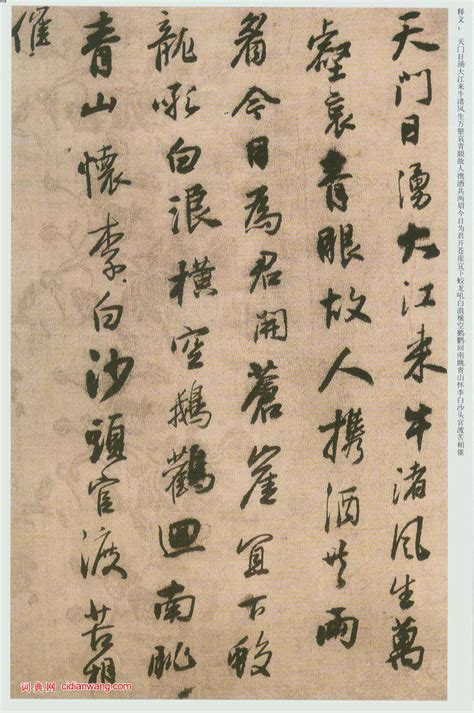 释文：天门日涌大江来牛渚风生万壑哀青眼故人携酒共两眉今日为君开苍崖直下蛟龙吼白浪横空鹅鹳回南眺青山怀李白沙头官渡苦相催
天門日湧大江来牛渚風生萬
壑哀青眼故人攜酒共兩
眉今日為君開蒼崖直下蛟
龍吼白浪橫空鵝鸛迴南眺
青山懷李白沙頭官渡苦相
催
词典网 cidianwang.com